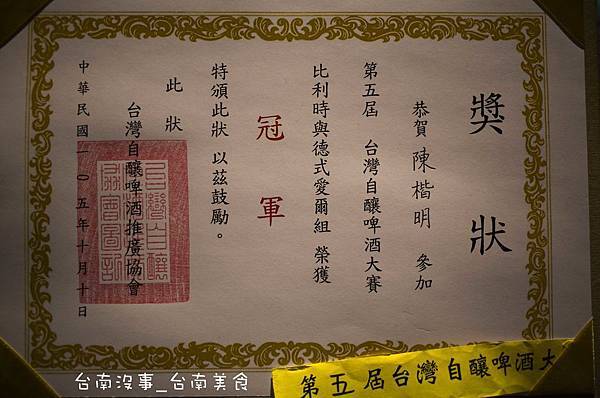 獎狀
恭賀 陳楷明 參加
第五屆 台灣自釀啤酒大賽
比利時與德式愛爾組 榮獲
冠軍
特頒此狀 以茲鼓勵。
此狀
台灣自釀啤酒推廣協會
中華民國一〇五年十月十日
第五屆台灣自釀啤酒大
台南沒事_台南美食